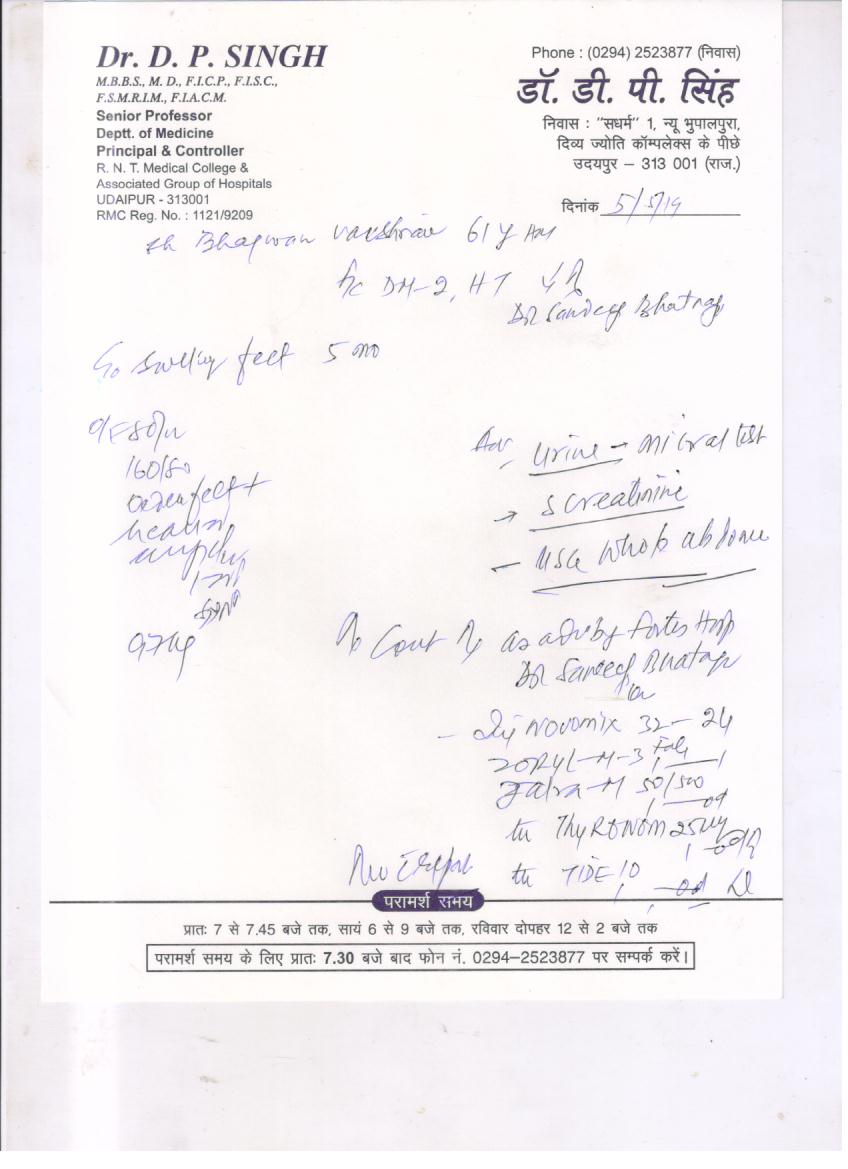 Dr. D. P. SINGH
M.B.B.S., M. D., F.I.C.P., F.I.S.C.,
F.S.M.R.I.M., F.I.A.C.M.
Senior Professor
Deptt. of Medicine
Principal & Controller
R. N. T. Medical College &
Associated Group of Hospitals
UDAIPUR - 313001
RMC Reg. No. : 1121/9209
Phone : (0294) 2523877 (निवास)
डॉ. डी. पी. सिंह
निवास : "सधर्म" 1, न्यू भुपालपुरा,
दिव्य ज्योति कॉम्पलेक्स के पीछे
उदयपुर – 313 001 (राज.)
दिनांक 5/5/19
Bhagwan 61 y
DM-2, HT
Dr Sandeep Bhatnagar
swelling feet 5 mo
160/80
feet +
97 kg
Adv Urine → micral test
→ S creatinine
- USG whole abdomen
Cont as adv by Fortis Hosp
Dr Sandeep Bhatnagar
- Inj NOVOMIX 32 - 24
ZORYL-M-3
Jalra-M 50/500 od
THYRONORM 25
TIDE 10 od
परामर्श समय
प्रातः 7 से 7.45 बजे तक, सायं 6 से 9 बजे तक, रविवार दोपहर 12 से 2 बजे तक
परामर्श समय के लिए प्रातः 7.30 बजे बाद फोन नं. 0294–2523877 पर सम्पर्क करें।